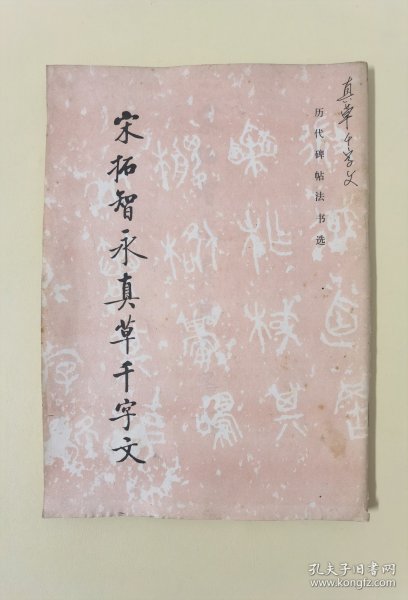 真草千字文
历代碑帖法书选
宋拓智永真草千字文
孔夫子旧书网
www.kongfz.com